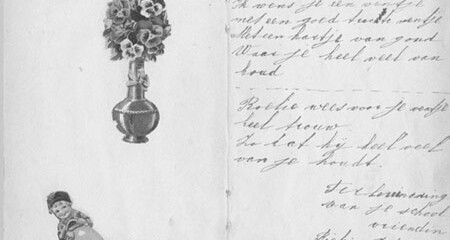 Ik wens je een ventje
met een goed ventje
Met een hartje van goud
Waar je heel veel van
houd
Roelie wees voor je ventje
heel trouw
Zo dat hij heel veel
van je houdt.
Ter herinnering
van je school
vriendin